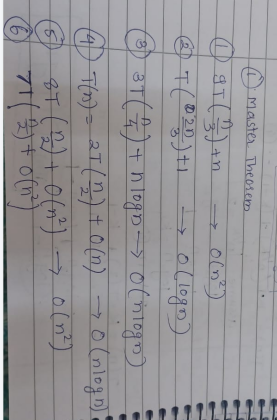 ① Master Theorem
① 9T(n/3)+n → O(n²)
② T(2n/3)+1 → O(logn)
③ 3T(n/4)+nlogn → O(nlogn)
④ T(n) = 2T(n/2)+O(n) → O(nlogn)
⑤ 8T(n/2)+O(n²) → O(n²)
⑥ 7T(n/2)+O(n²)